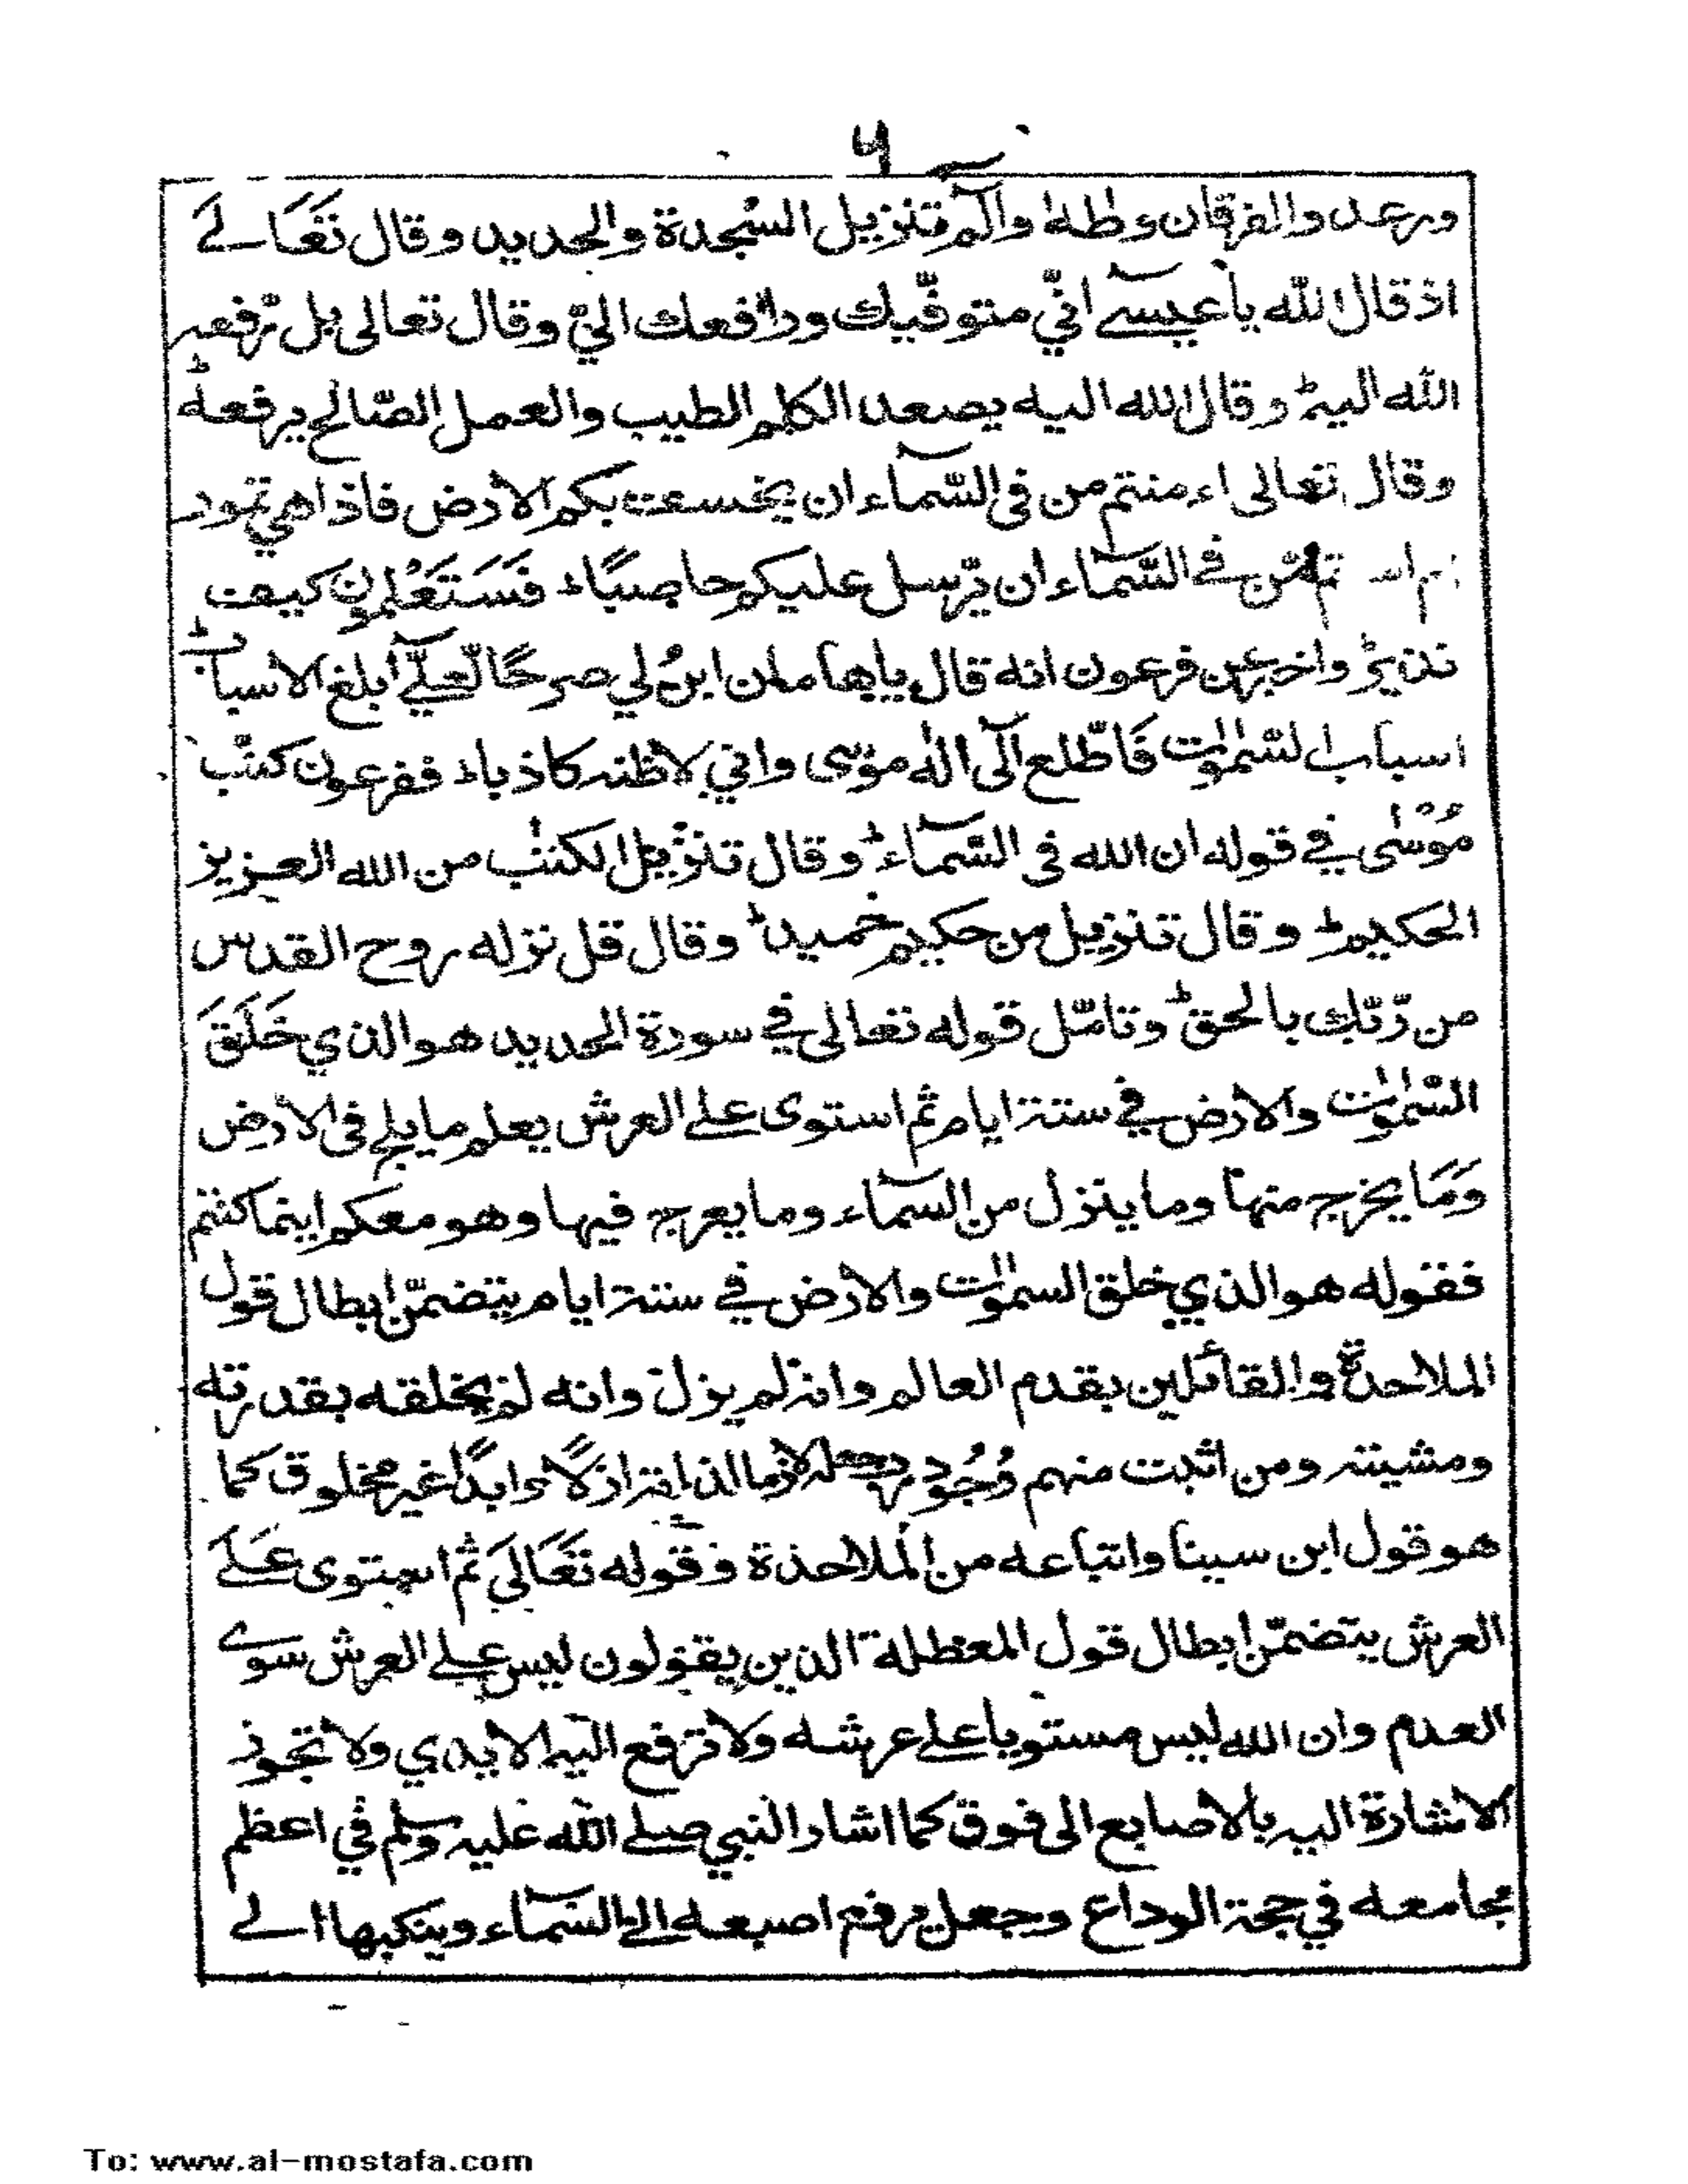 ۶
ورعد والفرقان وطه والٓم تنزيل السجدة والحديد وقال تَعَالٰے
اذ قال الله يا عيسےٓ انّي متوفّيك ورافعك اليّ وقال تعالى بل رّفعه
الله اليه ط وقال الله اليه يصعد الكلم الطيب والعمل الصّالح يرفعه ط
وقال تعالى اءمنتم من فى السّمآء ان يخسف بكم الارض فاذا هي تمور
ام في السّمآء ان يّرسل عليكم حاصبًا ط فَسَتَعْلمون كيف
نذير ط واخبر عن فرعون انه قال ياهامان ابن لي صرحًا لّعلّےٓ ابلغ الاسباب ط
اسباب السّمٰوٰت فَاطّلع الٓى الٰه موسى واني لاظنه كاذبا ط ففرعون كذّب
مُوْسٰى في قوله ان الله فى السّمآء ط وقال تنزيل الكتٰب من الله العزيز
الحكيم ط وقال تنزيل من حكيم حميد ط وقال قل نزله روح القدس
من رّبّك بالحق ط وتامّل قوله تعالى في سورة الحديد هو الذي خَلَقَ
السّمٰوٰت والارض في ستة ايام ثم استوى علے العرش يعلم ما يلج فى الارض
وَمَا يخرج منها وما ينزل من السّمآء وما يعرج فيها وهو معكم اينما كنتم
فقوله هو الذي خلق السمٰوٰت والارض في ستة ايام يتضمّن ابطال قول
الملاحدة والقائلين بقدم العالم وانه لم يزل وانه لم يخلقه بقدرته
ومشيته ومن اثبت منهم وُجُود لازما لذاته ازلًا وابدًا غير مخلوق كما
هو قول ابن سينا واتباعه من الملاحذة وقوله تَعَالٰى ثم استوى عَلَے
العرش يتضمّن ابطال قول المعطلة الذين يقولون ليس علے العرش سوے
العدم وان الله ليس مستويا علے عرشه ولا ترفع اليه الايدي ولا تجوز
الاشارة اليه بالاصابع الى فوق كما اشار النبي صلے الله عليه وسلم في اعظم
مجامعه في حجة الوداع وجعل يرفع اصبعه الے السّمآء وينكبها الے
To: www.al-mostafa.com